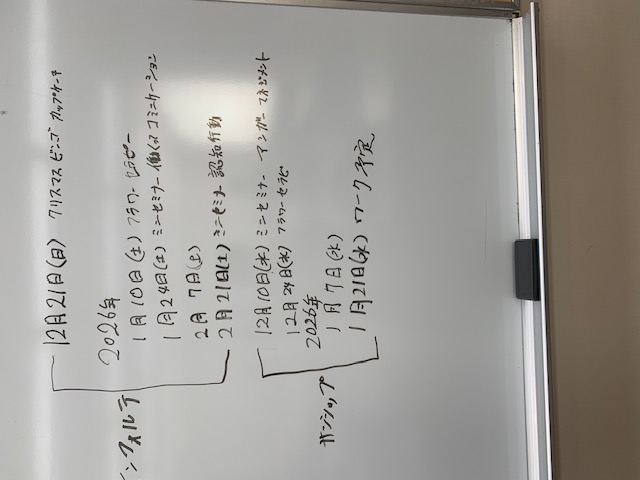 ンフォルテ
12月21日(日) クリスマス ビンゴ カップケーキ
2026年
1月10日(土) フラワーセラピー
1月24日(土) ミニセミナー 働く コミニケーション
2月7日(土)
2月21日(土) ミニセミナー 認知行動
ガンシップ
12月10日(水) ミニセミナー アンガーマネジメント
12月24日(水) フラワーセラピ
2026年
1月7日(水)
1月21日(水) ワーク予定